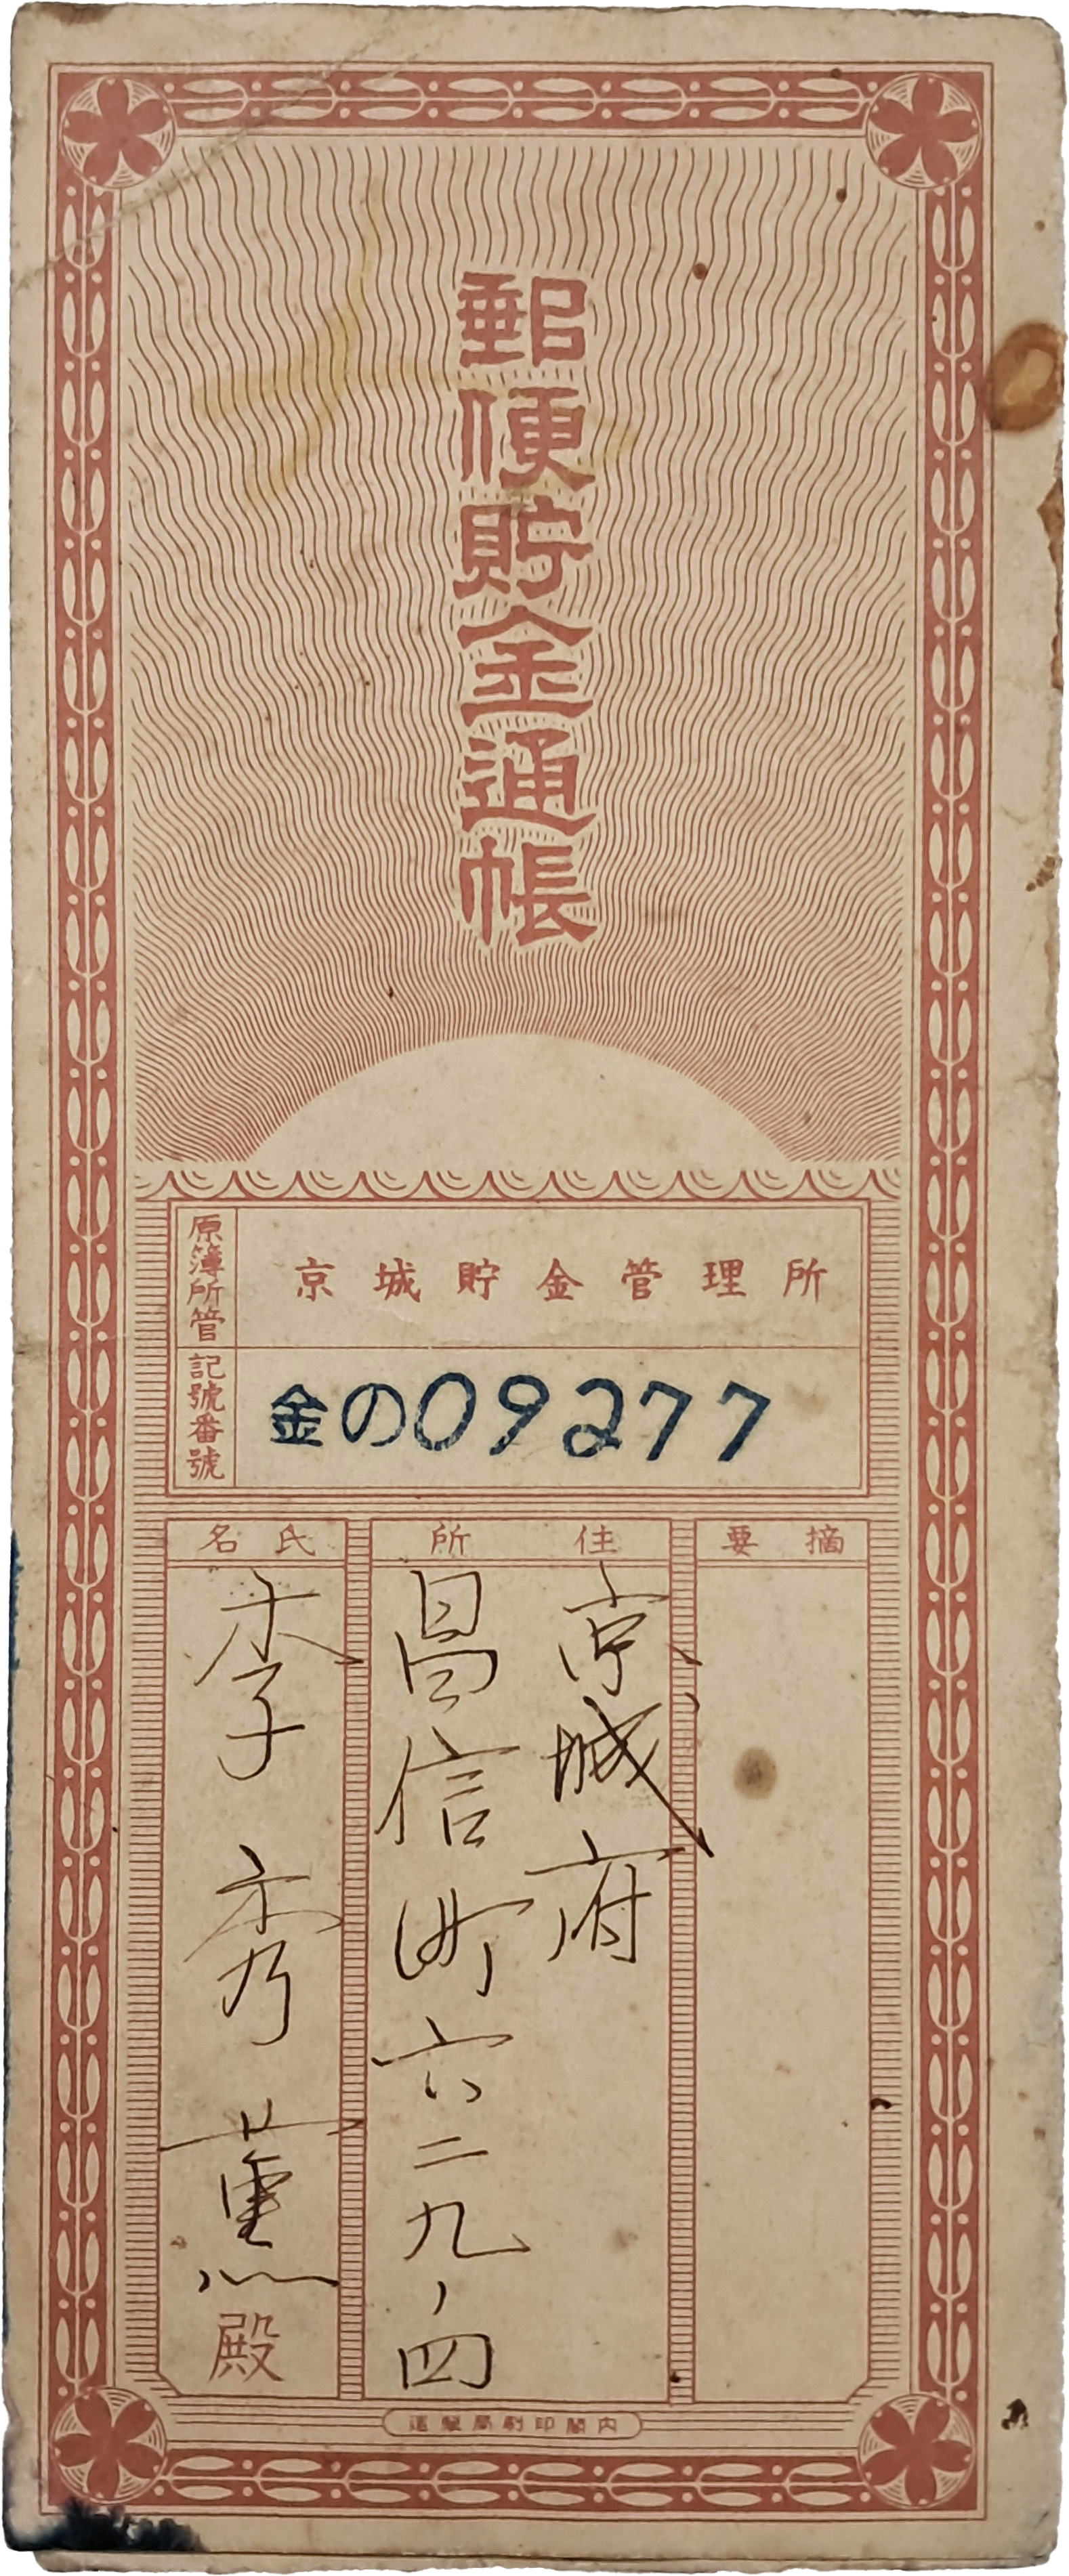 郵便貯金通帳
原簿所管
京城貯金管理所
記號番號
金の09277
摘要
住所
京城府
昌信町六二九ノ四
氏名
李秀薫殿
内閣印刷局製造